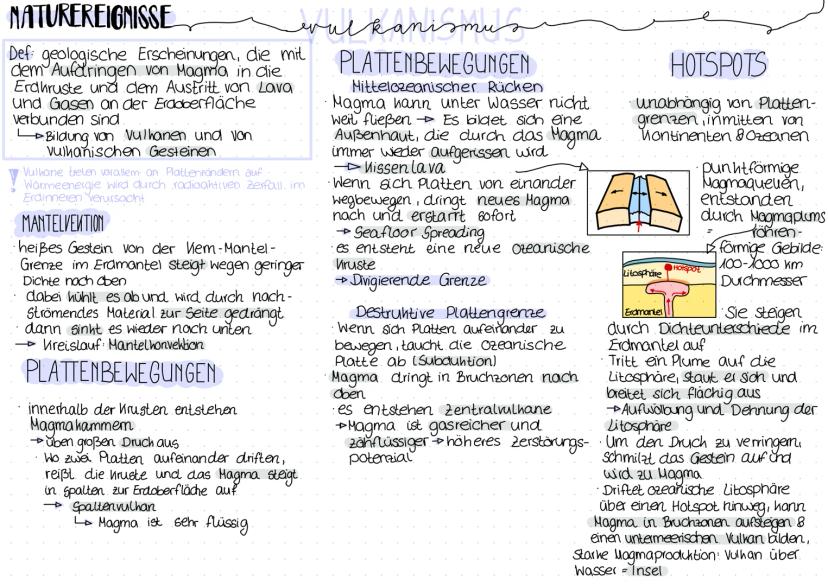 NATUREREIGNISSE
VULKANISMUS
vulkanismus
Def: geologische Erscheinungen, die mit
dem Aufdringen von Magma in die
Erdkruste und dem Austritt von Lava
und Gasen an der Erdoberfläche
verbunden sind
→ Bildung von Vulkanen und von
vulkanischen Gesteinen
! Vulkane treten vorallem an Plattenrändern auf
Wärmeenergie wird durch radioaktiven Zerfall im
Erdinneren verursacht
MANTELVENTION
· heißes Gestein von der Kern-Mantel-
Grenze im Erdmantel steigt wegen geringer
Dichte nach oben
· dabei kühlt es ab und wird durch nach-
strömendes Material zur Seite gedrängt
· dann sinkt es wieder nach unten
→ Kreislauf: Mantelkonvektion
PLATTENBEWEGUNGEN
· innerhalb der Krusten entstehen
Magmakammern
→ üben großen Druck aus
· Wo zwei Platten aufeinander driften,
reißt die Kruste und das Magma steigt
in Spalten zur Erdoberfläche auf
→ Spaltenvulkan
→ Magma ist sehr flüssig
PLATTENBEWEGUNGEN
Mittelozeanischer Rücken
· Magma kann unter Wasser nicht
weit fließen → Es bildet sich eine
Außenhaut, die durch das Magma
immer wieder aufgerissen wird
→ Kissenlava
· Wenn sich Platten von einander
wegbewegen, dringt neues Magma
nach und erstarrt sofort
→ Seafloor Spreading
· es entsteht eine neue ozeanische
Kruste
→ Divigierende Grenze
Destruktive Plattengrenze
· Wenn sich Platten aufeinander zu
bewegen, taucht die ozeanische
Platte ab (Subduktion)
· Magma dringt in Bruchzonen nach
oben
· es entstehen Zentralvulkane
→ Magma ist gasreicher und
zähflüssiger → höheres Zerstörungs-
potenzial
HOTSPOTS
· unabhängig von Platten-
grenzen, inmitten von
Kontinenten & Ozeanen
· punktförmige
Magmaquellen,
entstanden
durch Magmaplums
= röhren-
förmige Gebilde:
100-1000 km
Durchmesser
Hotspot
Litosphäre
Erdmantel
· Sie steigen
durch Dichteunterschiede im
Erdmantel auf
· Tritt ein Plume auf die
Litosphäre, staut er sich und
breitet sich flächig aus
→ Aufwölbung und Dehnung der
Litosphäre
· Um den Druck zu verringern,
schmilzt das Gestein auf und
wird zu Magma
· Driftet ozeanische Litosphäre
über einen Hotspot hinweg, kann
Magma in Bruchzonen aufsteigen &
einen untermeerischen Vulkan bilden,
starke Magmaproduktion: Vulkan über
Wasser = Insel